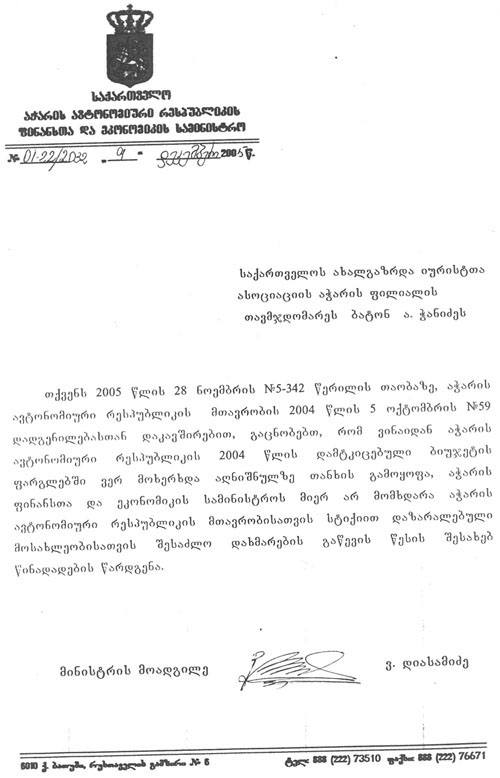 საქართველო
აჭარის ავტონომიური რესპუბლიკის
ფინანსთა და ეკონომიკის სამინისტრო
№ 01-22/2032 „ 9 " დეკემბერი 2005 წ.
საქართველოს ახალგაზრდა იურისტთა
ასოციაციის აჭარის ფილიალის
თავმჯდომარეს ბატონ ა. ჭანიძეს
თქვენს 2005 წლის 28 ნოემბრის №5-342 წერილის თაობაზე, აჭარის
ავტონომიური რესპუბლიკის მთავრობის 2004 წლის 5 ოქტომბრის №59
დადგენილებასთან დაკავშირებით, გაცნობებთ, რომ ვინაიდან აჭარის
ავტონომიური რესპუბლიკის 2004 წლის დამტკიცებული ბიუჯეტის
ფარგლებში ვერ მოხერხდა აღნიშნულზე თანხის გამოყოფა, აჭარის
ფინანსთა და ეკონომიკის სამინისტროს მიერ არ მომხდარა აჭარის
ავტონომიური რესპუბლიკის მთავრობისათვის სტიქიით დაზარალებული
მოსახლეობისათვის შესაძლო დახმარების გაწევის წესის შესახებ
წინადადების წარდგენა.
მინისტრის მოადგილე ვ. დიასამიძე
6010 ქ. ბათუმი, რუსთაველის გამზირი № 6 ტელ: 888 (222) 73510 ფაქსი: 888 (222) 76671